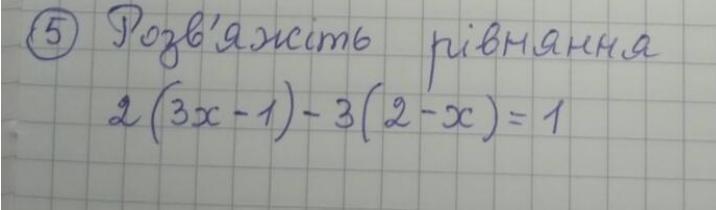 ⑤ Розв'яжіть рівняння
2(3x-1)-3(2-x)=1